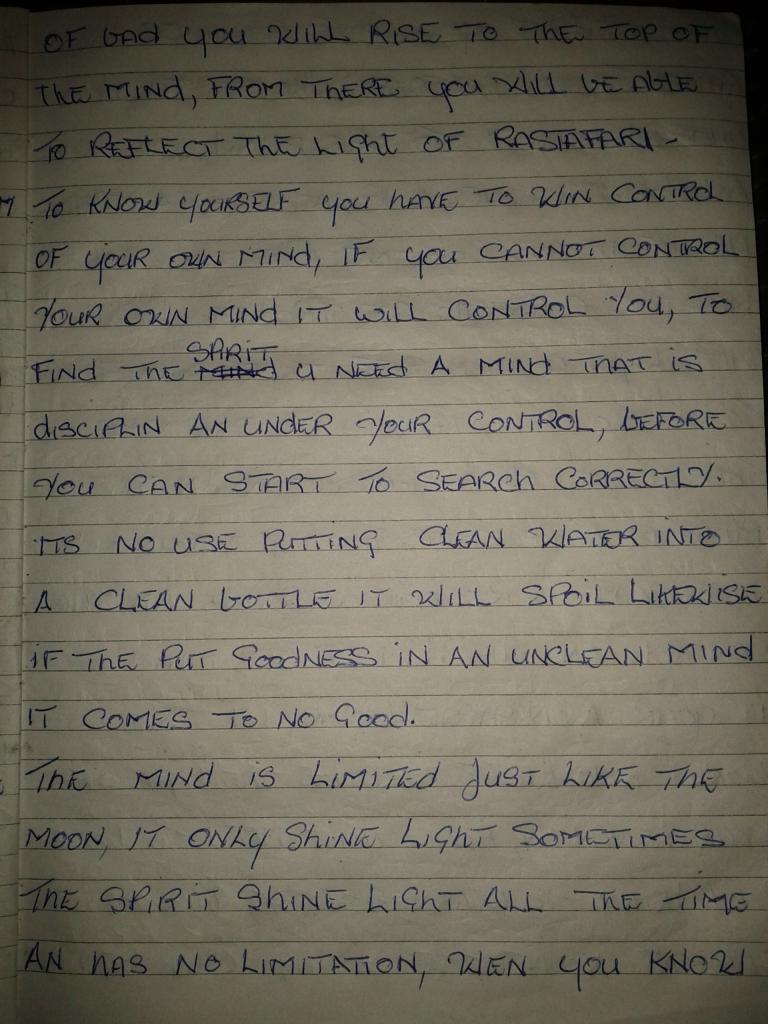 OF GAD YOU WILL RISE TO THE TOP OF
THE MIND, FROM THERE YOU WILL BE ABLE
TO REFLECT THE LIGHT OF RASTAFARI -
TO KNOW YOURSELF YOU HAVE TO WIN CONTROL
OF YOUR OWN MIND, IF YOU CANNOT CONTROL
YOUR OWN MIND IT WILL CONTROL YOU, TO
SPRIT
FIND THE MIND U NEED A MIND THAT IS
DISCIPLIN AN UNDER YOUR CONTROL, BEFORE
YOU CAN START TO SEARCH CORRECTLY.
ITS NO USE PUTTING CLEAN WATER INTO
A CLEAN BOTTLE IT WILL SPOIL LIKEWISE
IF THE PUT GOODNESS IN AN UNCLEAN MIND
IT COMES TO NO GOOD.
THE MIND IS LIMITED JUST LIKE THE
MOON, IT ONLY SHINE LIGHT SOMETIMES
THE SPIRIT SHINE LIGHT ALL THE TIME
AN HAS NO LIMITATION, WEN YOU KNOW